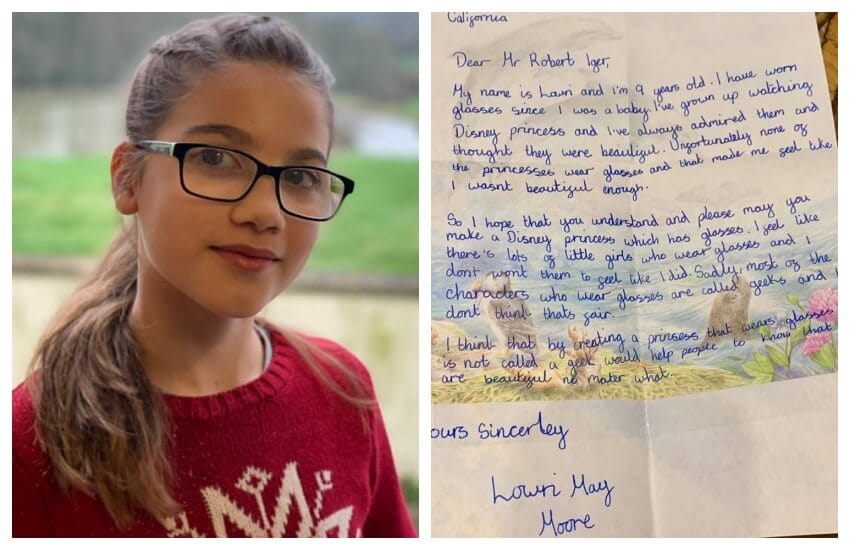 California
Dear Mr Robert Iger,
My name is Lowri and I'm 9 years old. I have worn
glasses since I was a baby. I've grown up watching
Disney princess and I've always admired them and
thought they were beautiful. Unfortunately none of
the princesses wear glasses and that made me feel like
I wasnt beautiful enough.
So I hope that you understand and please may you
make a Disney princess which has glasses. I feel like
there's lots of little girls who wear glasses and I
dont wont them to feel like I did. Sadly, most of the
characters who wear glasses are called geeks and I
dont think thats fair.
I think that by creating a princess that wears glasses
is not called a geek would help people to know that
are beautiful no mater what.
ours Sincerley
Lowri May
Moore